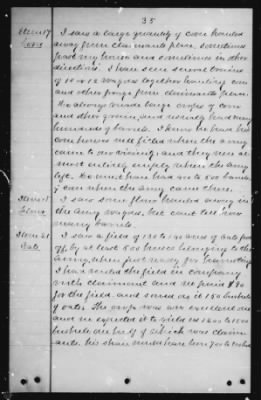 35
Item 17 I saw a large quantity of corn hauled
Corn away from claimants place. sometimes
past my house and sometimes in other
directions. I have seen several trains
of 10 or 12 wagons together hauling corn
and other forage from claimants farm.
He always made large crops of corn
and other grain, and usually had many
hundreds of barrels. I know he had his
corn houses well filled when the army
came to our vicinity, and they were al-
most entirely empty when the army
left. He must have had
when the army came there.
Item I saw some flour hauled away in
Flour the Army wagons, but cant tell how
many barrels.
Item 21 I saw a field of 130 to 140 acres of oats fed
Oats off, by at least 500 horses belonging to the
Army, when just ready for harvesting.
I had rented the field in company
with claimant and we paid $
for the field, and sowed in it 150 bushels
of oats. The crop was an excellent one
and we expected it to yield
bushels, one half of which was claim-
ants. his share